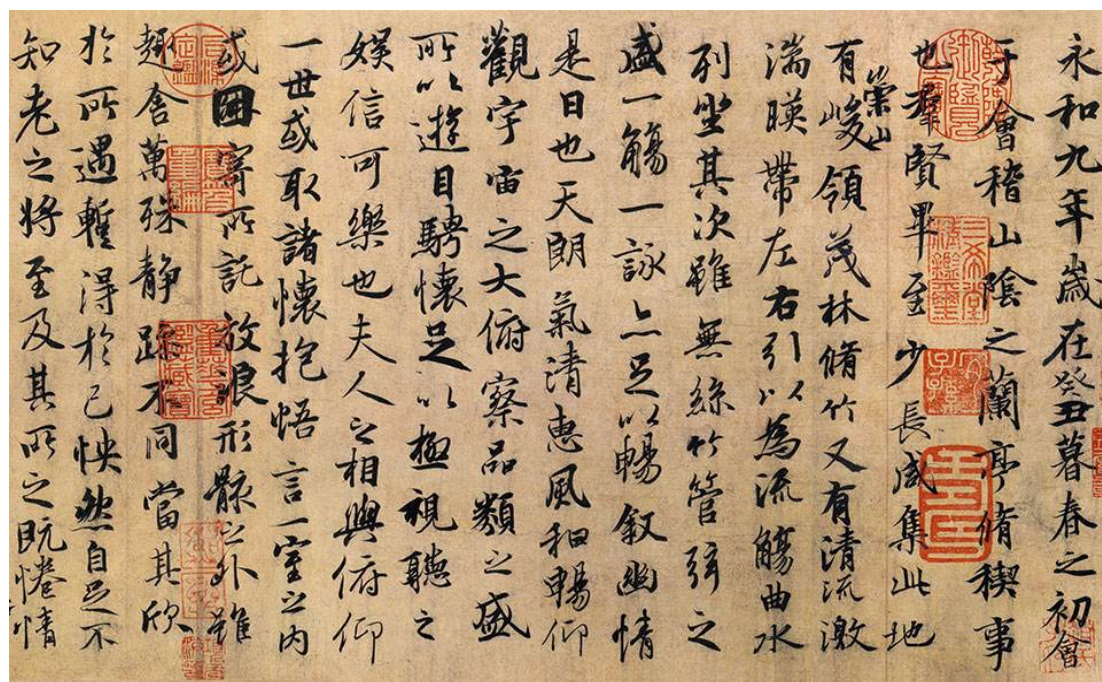 永和九年歲在癸丑暮春之初會
于會稽山陰之蘭亭脩稧事
也羣賢畢至少長咸集此地
有崇山峻領茂林脩竹又有清流激
湍暎帶左右引以為流觴曲水
列坐其次雖無絲竹管弦之
盛一觴一詠亦足以暢敘幽情
是日也天朗氣清惠風和暢仰
觀宇宙之大俯察品類之盛
所以遊目騁懷足以極視聽之
娛信可樂也夫人之相與俯仰
一世或取諸懷抱悟言一室之內
或因寄所託放浪形骸之外雖
趣舍萬殊靜躁不同當其欣
於所遇暫得於己怏然自足不
知老之將至及其所之既惓情
三希堂精鑑璽
宜子孫